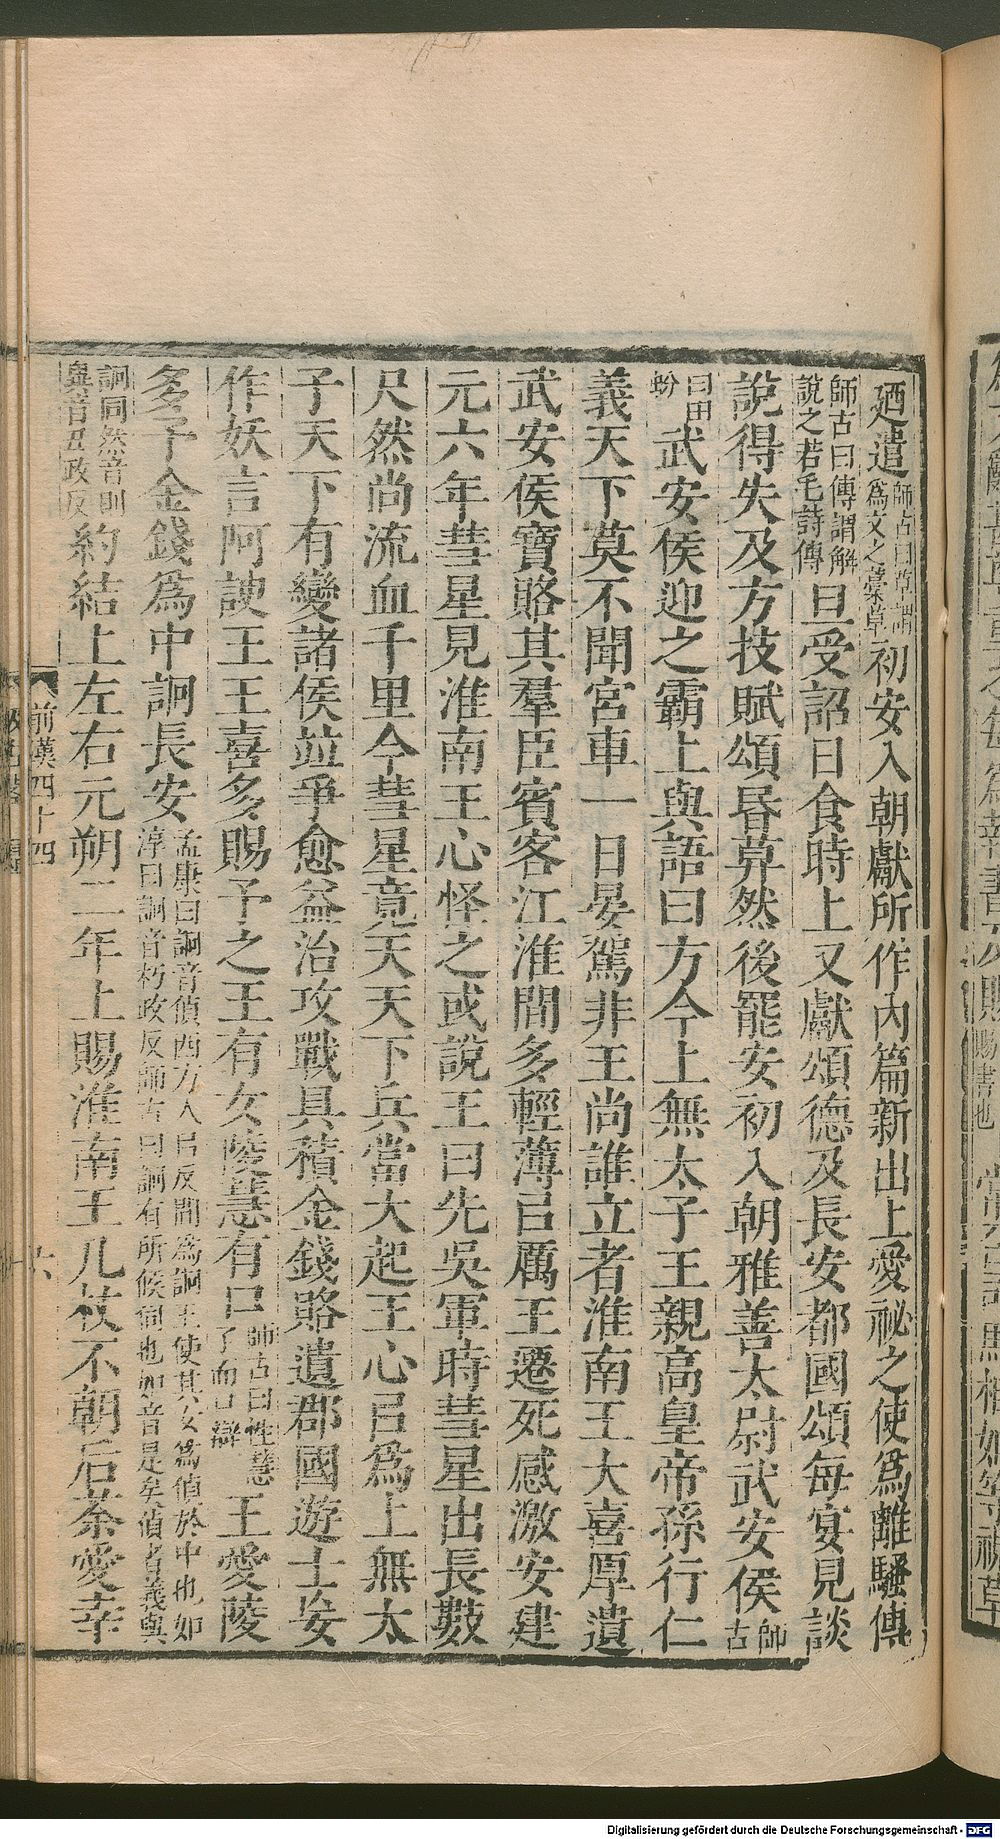 廼遣師古曰草謂爲文之藁草初安入朝獻所作內篇新出上愛祕之使爲離騷傳
師古曰傳謂解說之若毛詩傳旦受詔日食時上又獻頌德及長安都國頌每宴見談
說得失及方技賦頌昏莫然後罷安初入朝雅善太尉武安侯師古
曰田蚡武安侯迎之霸上與語曰方今上無太子王親高皇帝孫行仁
義天下莫不聞宮車一日晏駕非王尚誰立者淮南王大喜厚遺
武安侯寶賂其羣臣賓客江淮間多輕薄㠯厲王遷死感激安建
元六年彗星見淮南王心怪之或說王曰先吳軍時彗星出長數
尺然尚流血千里今彗星竟天天下兵當大起王心㠯爲上無太
子天下有變諸侯並爭愈益治攻戰具積金錢賂遺郡國遊士妄
作妖言阿諛王王喜多賜予之王有女陵慧有口師古曰性慧了而口辯王愛陵
多予金錢爲中詗長安孟康曰詗音偵西方人㠯反間爲詗王使其女爲偵於中也如淳曰詗音朽政反師古曰詗有所候伺也如音是矣偵者義與
詗同然音則異音丑政反約結上左右元朔二年上賜淮南王几杖不朝后荼愛幸
前漢四十四
六
賜書也
Digitalisierung gefördert durch die Deutsche Forschungsgemeinschaft - DFG